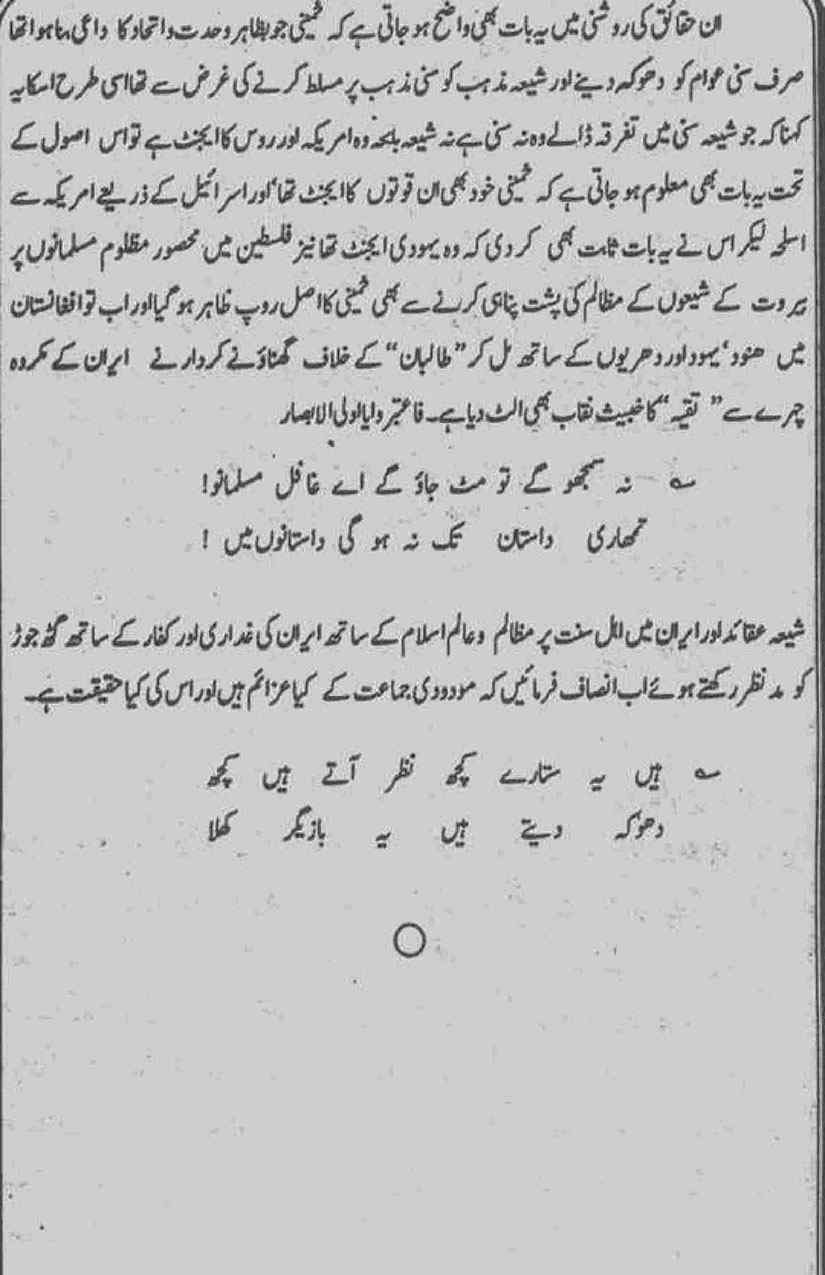 ان حقائق کی روشنی میں یہ بات بھی واضح ہو جاتی ہے کہ خمینی جو بظاہر وحدت و اتحاد کا داعی بنا ہوا تھا
صرف سنی عوام کو دھوکہ دینے اور شیعہ مذہب کو سنی مذہب پر مسلط کرنے کی غرض سے تھا اسی طرح اسکا یہ
کہنا کہ جو شیعہ سنی میں تفرقہ ڈالے وہ نہ سنی ہے نہ شیعہ بلکہ وہ امریکہ اور روس کا ایجنٹ ہے تو اس اصول کے
تحت یہ بات بھی معلوم ہو جاتی ہے کہ خمینی خود بھی ان قوتوں کا ایجنٹ تھا‘ اور اسرائیل کے ذریعے امریکہ سے
اسلحہ لیکر اس نے یہ بات ثابت بھی کر دی کہ وہ یہودی ایجنٹ تھا نیز فلسطین میں محصور مظلوم مسلمانوں پر
بیروت کے شیعوں کے مظالم کی پشت پناہی کرنے سے بھی خمینی کا اصل روپ ظاہر ہو گیا اور اب تو افغانستان
میں ھنود‘ یہود اور دھریوں کے ساتھ مل کر ”طالبان“ کے خلاف گھناؤنے کردار نے ایران کے مکروہ
چہرے سے ”تقیہ“ کا خبیث نقاب بھی الٹ دیا ہے۔ فاعتبروا یا اولی الابصار
؎ نہ سمجھو گے تو مٹ جاؤ گے اے غافل مسلمانو!
تمھاری داستان تک نہ ہو گی داستانوں میں !
شیعہ عقائد اور ایران میں اہل سنت پر مظالم و عالم اسلام کے ساتھ ایران کی غداری اور کفار کے ساتھ گٹھ جوڑ
کو مد نظر رکھتے ہوئے اب انصاف فرمائیں کہ مودودی جماعت کے کیا عزائم ہیں اور اس کی کیا حقیقت ہے۔
؎ ہیں یہ ستارے کچھ نظر آتے ہیں کچھ
دھوکہ دیتے ہیں یہ بازیگر کھلا